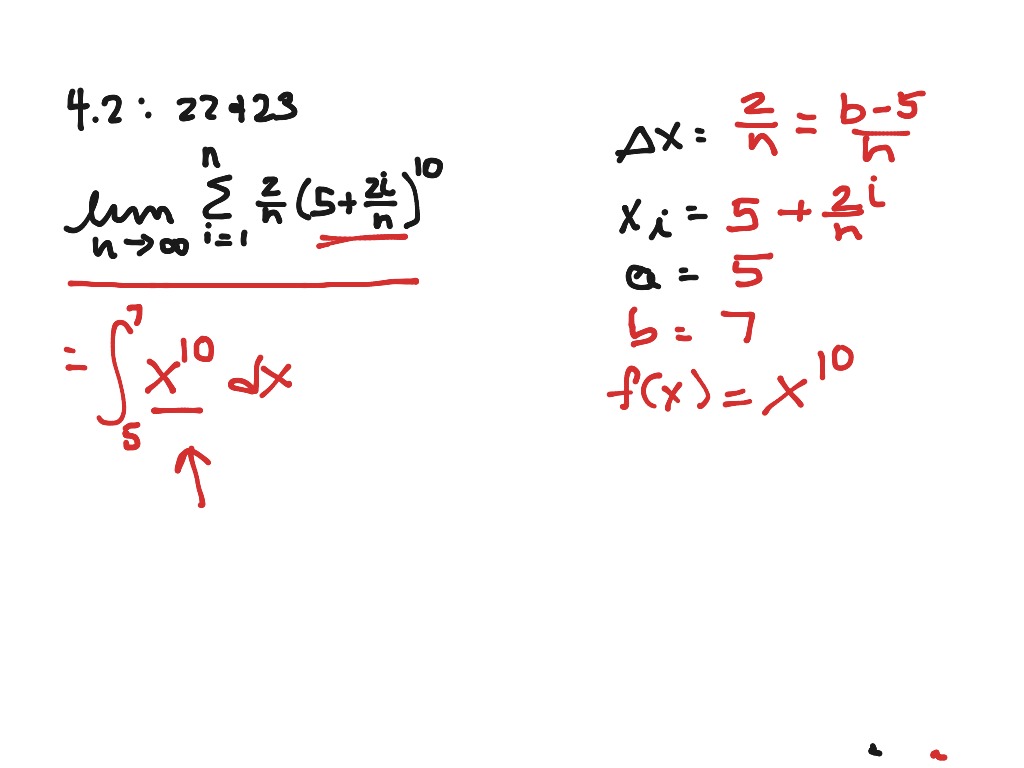 4.2: 22+23
lim n→∞ Σ i=1 n 2/n (5+2i/n)^10
= ∫_5^7 x^10 dx
Δx = 2/n = b-5/n
x_i = 5 + 2i/n
a = 5
b = 7
f(x) = x^10